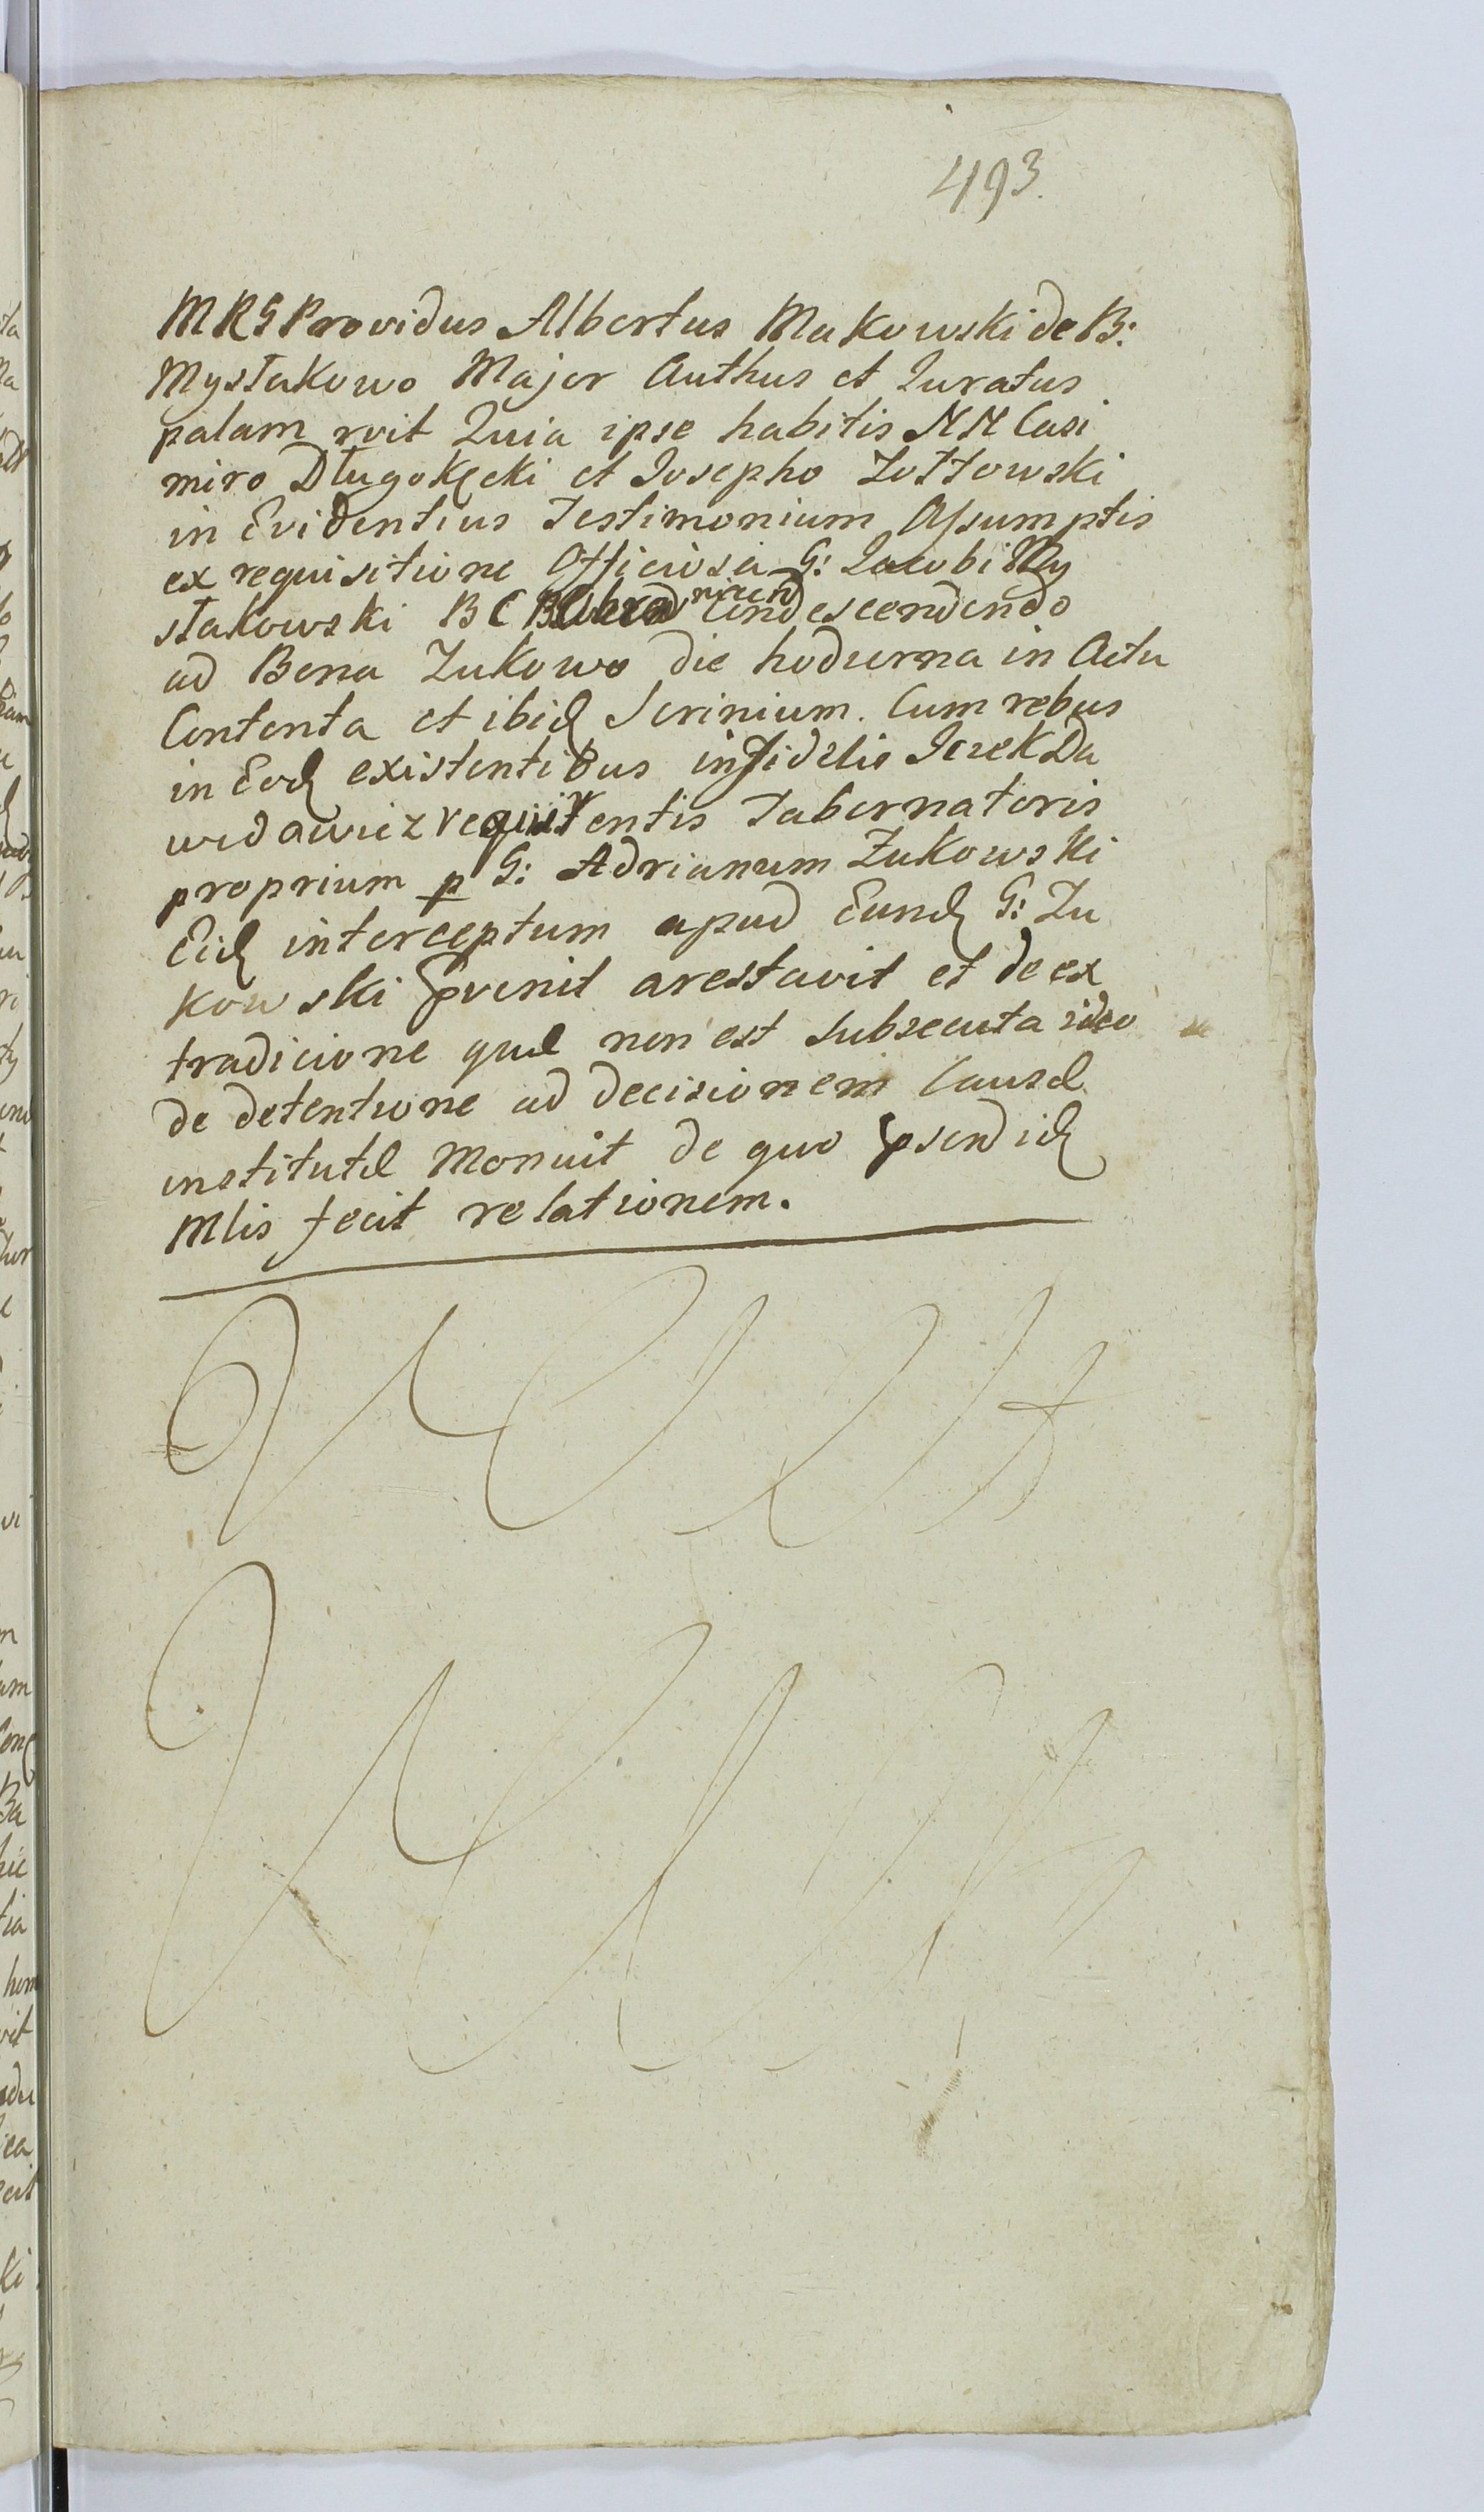 493.
MRS Providus Albertus Makowski de B:
Mystakowo Major Authus et Juratus
palam rvit Quia ipse habitis NN Casi
miro Długokęcki et Josepho Zołtowski
in Evidentius Testimonium Assumptis
ex requisitione Officiosa G: Jacobi My
stakowski B C B condescendendo
ad Bona Zukowo die hodierna in Actu
Contenta et ibid Scrinium. Cum rebus
in Eod existentibus infidelis Icek Da
widowicz requirentis Tabernatoris
proprium p G: Adrianum Zukowski
Eid interceptum apud Eund G: Zu
kowski pvenit arestavit et de ex
tradicione quæ non est subsecuta ideo
de detentione ad decisionem Causæ
institutæ Monuit de quo psendid
Mlis fecit relationem.